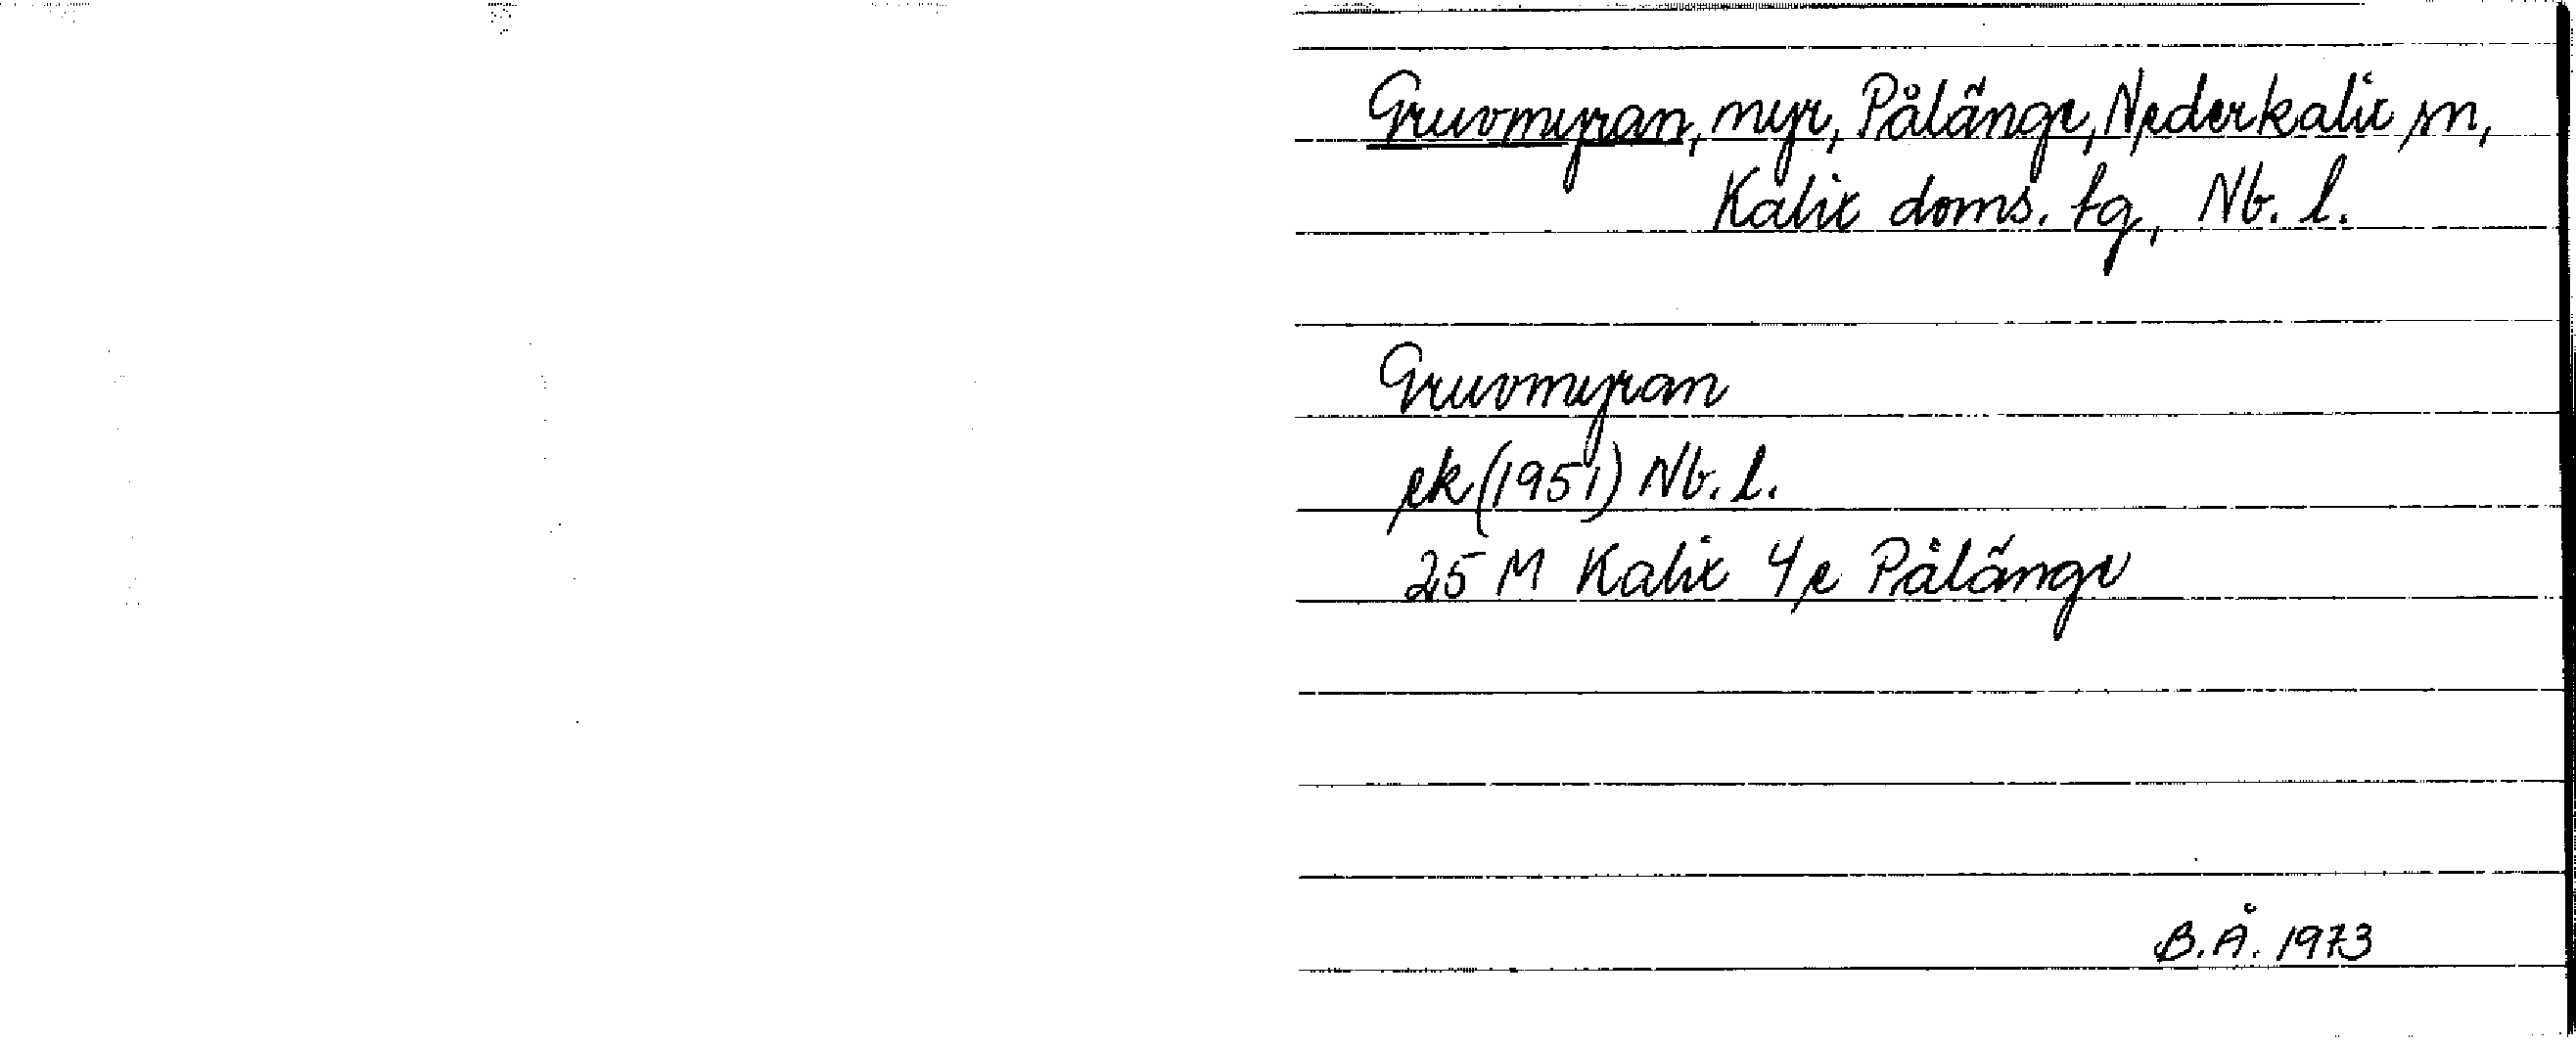 Gruvmyran, myr, Pålänge, Nederkalix sn,
Kalix doms. tg, Nb. l.
Gruvmyran
ek (1951) Nb. l.
25 M Kalix 4e Pålänge
B.Å. 1973